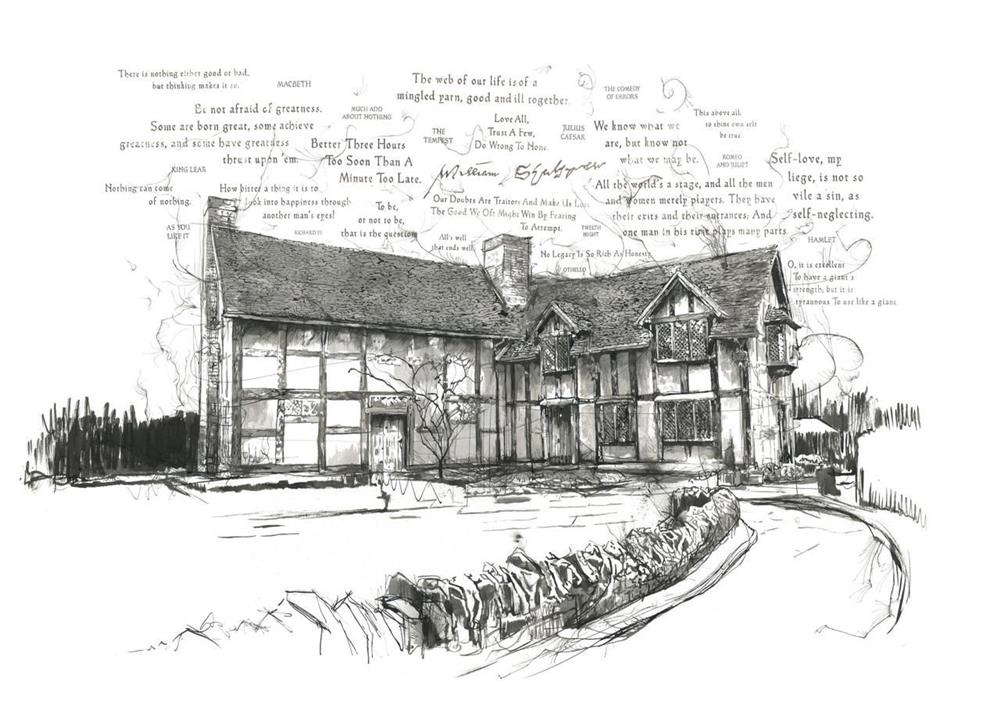 There is nothing either good or bad,
but thinking makes it so.
MACBETH
The web of our life is of a
mingled yarn, good and ill together.
THE COMEDY
OF ERRORS
Be not afraid of greatness.
Some are born great, some achieve
greatness, and some have greatness
thrust upon 'em.
MUCH ADO
ABOUT NOTHING
Better Three Hours
Too Soon Than A
Minute Too Late.
THE
TEMPEST
Love All,
Trust A Few,
Do Wrong To None.
JULIUS
CAESAR
We know what we
are, but know not
what we may be.
This above all:
to thine own self
be true.
ROMEO
AND JULIET
Self-love, my
liege, is not so
vile a sin, as
self-neglecting.
KING LEAR
William
Nothing can come
of nothing.
How bitter a thing it is to
look into happiness through
another man's eyes!
To be,
or not to be,
that is the question
Our Doubts Are Traitors And Make Us Lose
The Good We Oft Might Win By Fearing
To Attempt.
All the world's a stage, and all the men
and women merely players. They have
their exits and their entrances; And
one man in his time plays many parts
AS YOU
LIKE IT
RICHARD III
All's well
that ends well
TWELFTH
NIGHT
No Legacy Is So Rich As Honesty
OTHELLO
HAMLET
O, it is excellent
To have a giant's
strength; but it is
tyrannous To use like a giant.